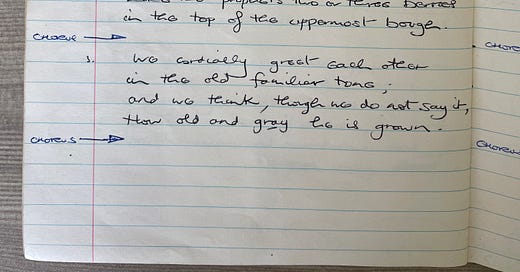 prophets two or three berries
in the top of the uppermost bough.
CHORUS
3. We cordially greet each other
in the old familiar tone;
and we think, though we do not say it,
How old and gray he is grown.
CHORUS